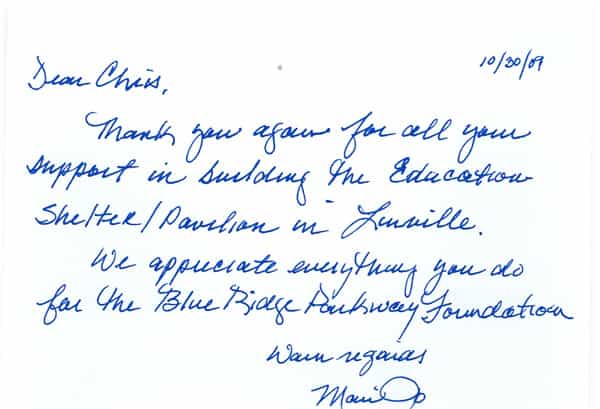 10/30/09
Dear Chris,
Thank you again for all your
support in building the Education
Shelter/Pavilion in Linville.
We appreciate everything you do
for the Blue Ridge Parkway Foundation
Warm regards